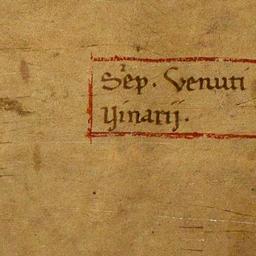 Sep. Venuti
ijinarij.